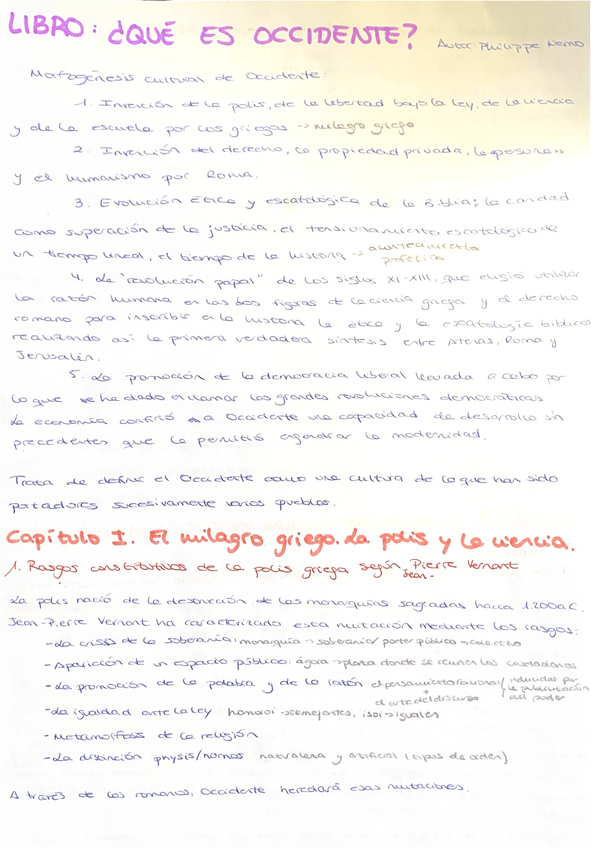 LIBRO: ¿QUÉ ES OCCIDENTE? Autor Philippe Nemo
Morfogénesis cultural de Occidente:
1. Invención de la polis, de la libertad bajo la ley, de la ciencia
y de la escuela por los griegos → milagro griego
2. Invención del derecho, la propiedad privada, la "persona"
y el humanismo por Roma.
3. Evolución ética y escatológica de la Biblia: la caridad
como superación de la justicia, el tensionamiento escatológico de
un tiempo lineal, el tiempo de la historia → acontecimiento
profético
4. La "revolución papal" de los siglos XI-XIII, que eligió utilizar
la razón humana en las dos figuras de la ciencia griega y el derecho
romano para inscribir en la historia la ética y la escatología bíblica
realizando así la primera verdadera síntesis entre Atenas, Roma y
Jerusalén.
5. La promoción de la democracia liberal llevada a cabo por
lo que se ha dado a llamar las grandes revoluciones democráticas
La economía confirió a Occidente una capacidad de desarrollo sin
precedentes que le permitió engendrar la modernidad.
Trata de definir el Occidente como una cultura de la que han sido
portadores sucesivamente varios pueblos.
Capítulo I. El milagro griego. La polis y la ciencia.
1. Rasgos constitutivos de la polis griega según, Pierre Vernant
Jean-
La polis nació de la destrucción de las monarquías sagradas hacia 1200a.C.
Jean-Pierre Vernant ha caracterizado esta mutación mediante los rasgos:
- La crisis de la soberanía: monarquía → soberanía/poder público → colectivo
- Aparición de un espacio público: ágora → plaza donde se reúnen los ciudadanos
- La promoción de la palabra y de la razón el pensamiento racional / inducidas por
+ la publicitación
el arte del discurso del poder
- La igualdad ante la ley homoioi → semejantes, isoi → iguales
- Metamorfosis de la religión
- La distinción physis/nomos natural y artificial (tipos de orden)
A través de los romanos, Occidente heredará esas mutaciones.